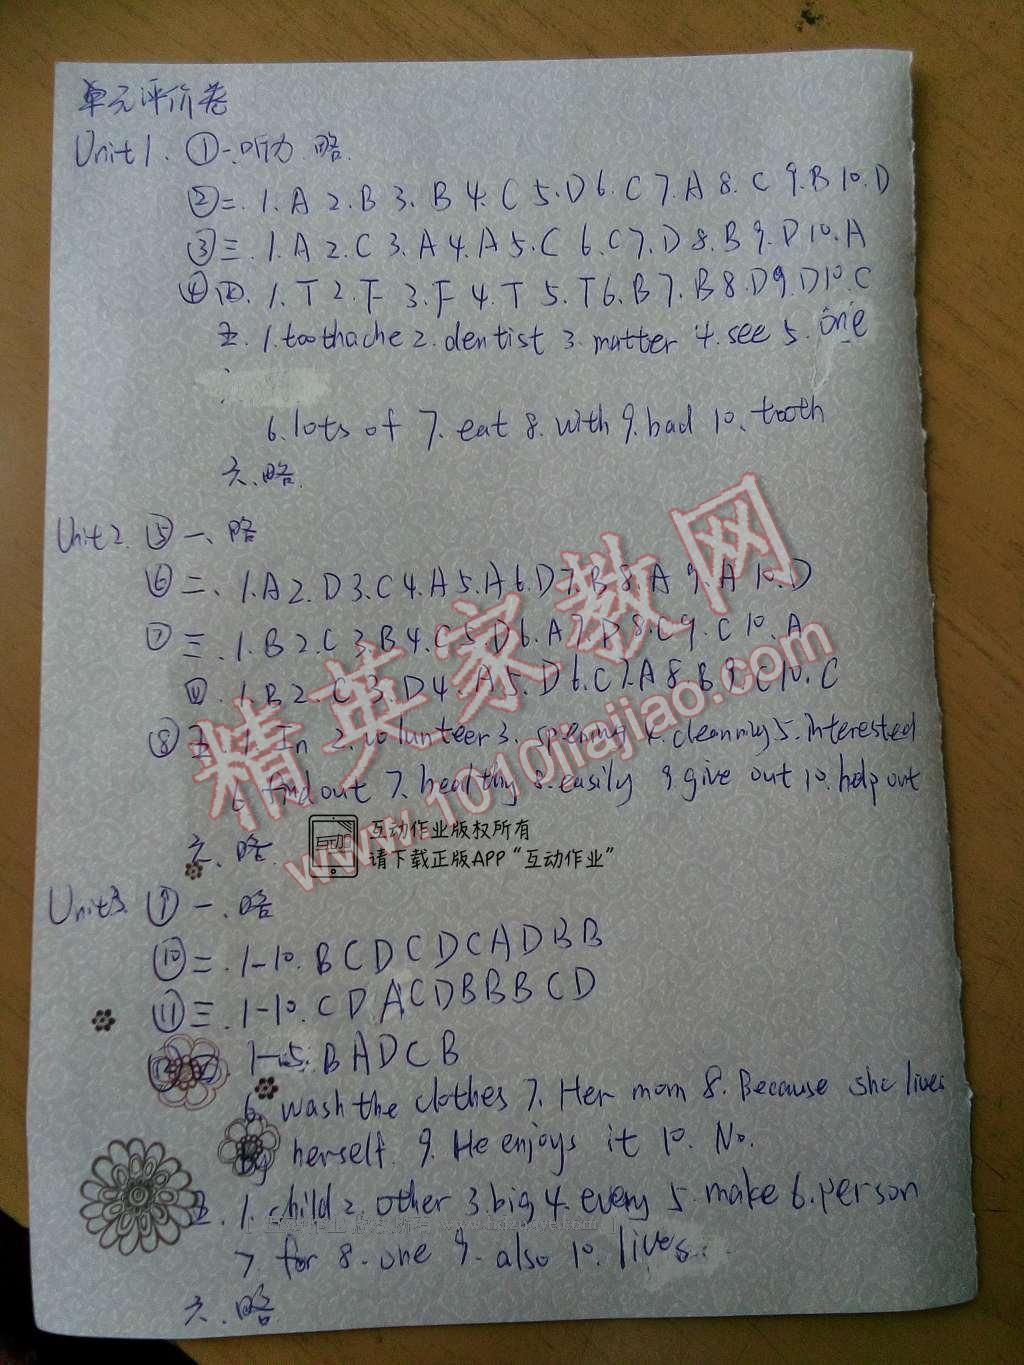 单元评价卷
Unit 1. ①一.听力 略.
②二. 1. A 2. B 3. B 4. C 5. D 6. C 7. A 8. C 9. B 10. D
③三. 1. A 2. C 3. A 4. A 5. C 6. C 7. D 8. B 9. D 10. A
④四. 1. T 2. F 3. F 4. T 5. T 6. B 7. B 8. D 9. D 10. C
五. 1. toothache 2. dentist 3. matter 4. see 5. one
6. lots of 7. eat 8. with 9. bad 10. tooth
六.略.
Unit 2. ⑤一、略
⑥二、1. A 2. D 3. C 4. A 5. A 6. D 7. B 8. A 9. A 10. D
⑦三. 1. B 2. C 3. B 4. C 5. D 6. A 7. D 8. C 9. C 10. A
四. 1. B 2. C 3. D 4. A 5. D 6. C 7. A 8. B 9. C 10. C
⑧五. 1. In 2. volunteer 3. 4. cleaning 5. interested
6. find out 7. healthy 8. easily 9. give out 10. help out
六、略.
互动作业版权所有
请下载正版APP“互动作业”
精英家教网
www.1010jiajiao.com
Unit 3. 一.略
⑩二. 1-10. B C D C D C A D B B
⑪三. 1-10. C D A C D B B B C D
1-5. B A D C B
6. wash the clothes 7. Her mom 8. Because she lives
by herself. 9. He enjoys it 10. No.
五. 1. child 2. other 3. big 4. every 5. make 6. person
7. for 8. one 9. also 10. lives.
六.略